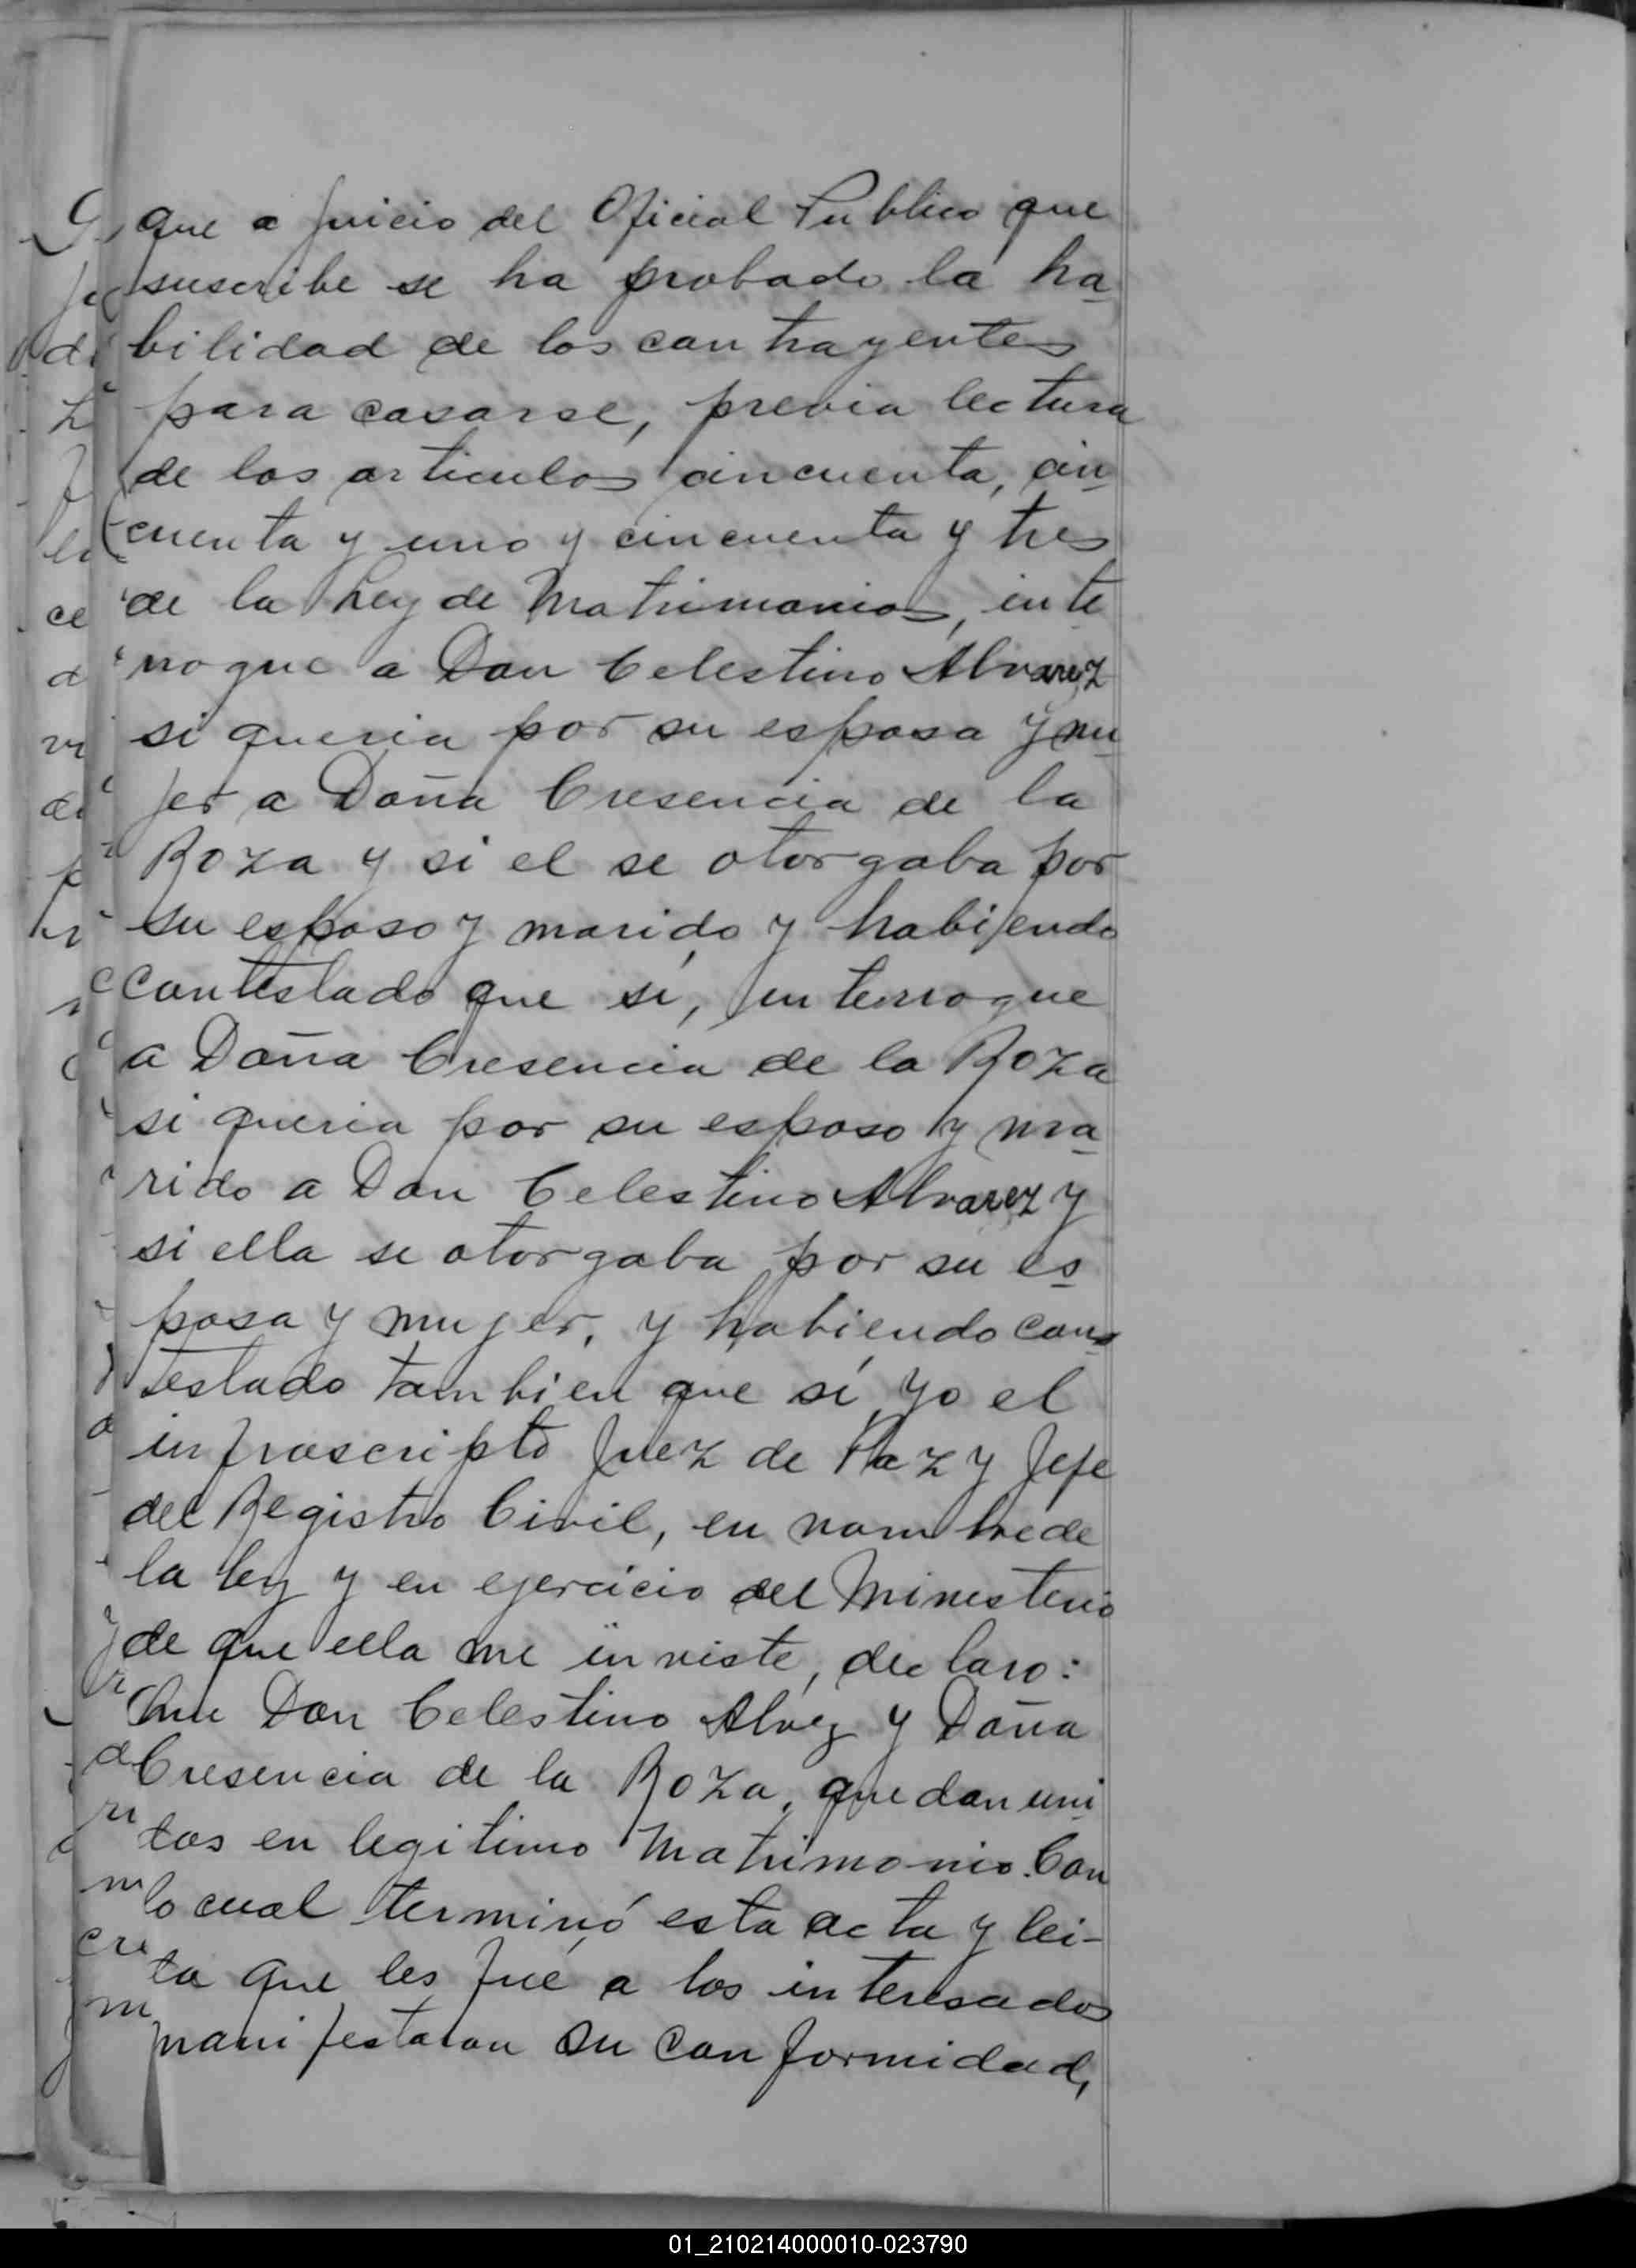 que a juicio del Oficial Publico que
suscribe se ha probado la ha
bilidad de los contrayentes
para casarse, previa lectura
de los articulos cincuenta, cin
cuenta y uno y cincuenta y tres
de la Ley de Matrimonios, inte
rrogue a Don Celestino Alvarez
si queria por su esposa y mu
jer a Doña Cresencia de la
Roza y si el se otorgaba por
su esposo y marido y habiendo
contestado que si, interrogue
a Doña Cresencia de la Roza
si queria por su esposo y ma
rido a Don Celestino Alvarez y
si ella se otorgaba por su es
posa y mujer, y habiendo con
testado tambien que sí, yo el
infrascripto Juez de Paz y Jefe
del Registro Civil, en nombre de
la ley y en ejercicio del Ministerio
de que ella me inviste, declaro:
Que Don Celestino Alvez y Doña
Cresencia de la Roza, quedan uni
dos en legitimo Matrimonio. Con
lo cual terminó esta acta y lei-
da que les fué a los interesados
manifestaron su conformidad,
01_210214000010-023790